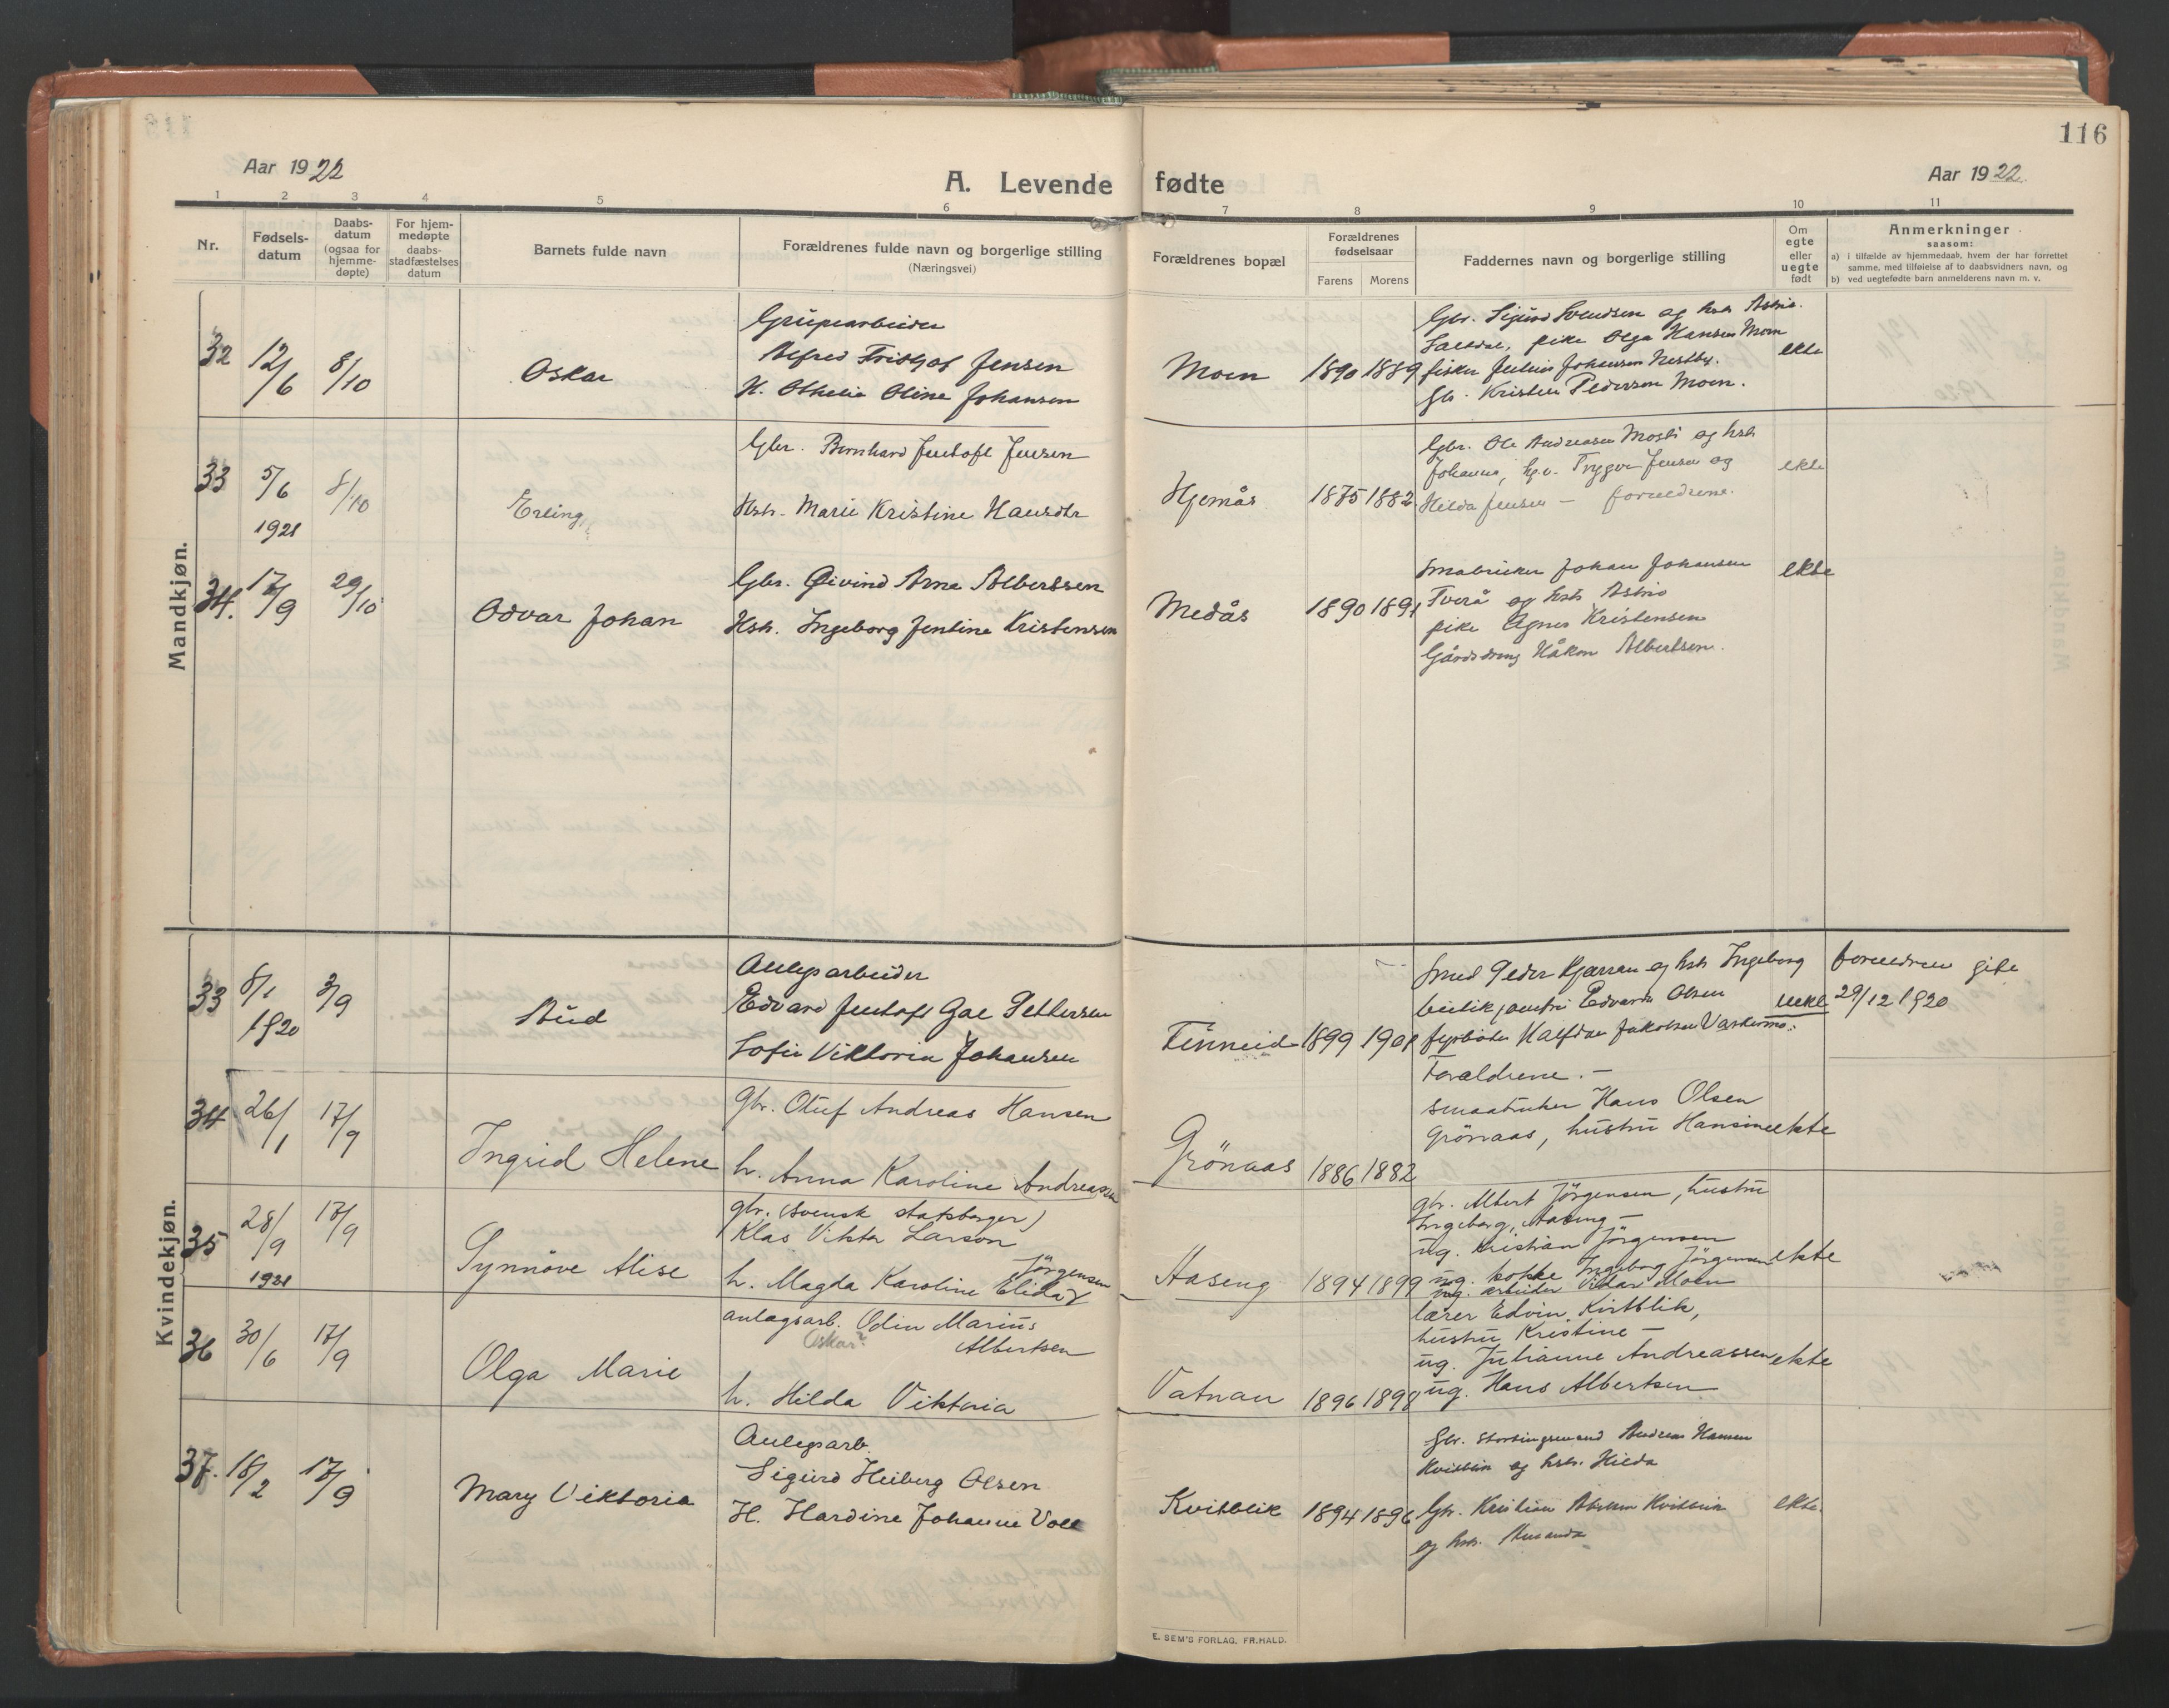 116
Aar 1922
A. Levende fødte
Aar 1922.
1 2 3 4 5 6 7 8 9 10 11
Nr.
Fødsels-
datum
Daabs-
datum
(ogsaa for
hjemme-
døpte)
For hjem-
medøpte
daabs-
stadfæstelses
datum
Barnets fulde navn
Forældrenes fulde navn og borgerlige stilling
(Næringsvei)
Forældrenes bopæl
Forældrenes
fødselsaar
Farens Morens
Faddernes navn og borgerlige stilling
Om
egte
eller
uegte
født
Anmerkninger
saasom:
a) i tilfælde av hjemmedaab, hvem der har forrettet
samme, med tilføielse af to daabsvidners navn, og
b) ved uegtefødte barn anmelderens navn m. v.
Mandkjøn.
32 12/6 8/10
Oskar
Grubearbeider
Alfred Fritjof Jensen
H. Othelie Oline Johansen
Moen 1890 1889
Gbr. Sigurd Svendsen og hstr Astrid
pike Olga Hansen Moen
fisker Julius Johansen Nestby.
Gbr. Kristen Pedersen Moen.
ekte
33 5/6 1921 8/10
Erling
Gbr. Bernhard Jentoft Jensen
Hstr. Marie Kristine Hansdtr
Hjemås 1875 1882
Gbr. Ole Andreasen Mosti og hstr
Johanna, Trygve Jensen og
Hilda Jensen — forældrene.
ekte
34. 17/9 29/10
Odvar Johan
Gbr. Øivind Arne Albertsen
Hstr. Ingeborg Jentine Kristensen
Medås 1890 1891
Småbruker Johan Johansen
Tverå og hstr Astrid
pike Agnes Kristensen
Gårdsdreng Håkon Albertsen.
ekte
Kvindekjøn.
33 8/1 1920 3/9
Aud
Anlegsarbeider
Edvard Jentoft Gae Pettersen
Sofie Viktoria Johansen
Finneid 1899 1901
Smed Peder Kjærran og hstr Ingeborg
Edvarda Olsen
fyrbøter Halfdan Jakobsen
Forældrene. —
uekt
forældrene gift
29/12 1920
34 26/1 17/9
Ingrid Helene
gbr. Oluf Andreas Hansen
h. Anna Karoline Andreasen
Grönaas 1886 1882
smaabruker Hans Olsen
Grönaas, hustru Hansine
ekte
35 28/9 1921 17/9
Synnöve Alise
gbr. (svensk statsborger)
Klas Viktor Larson
h. Magda Karoline Elida Jörgensen
Aaseng 1894 1899
gbr. Albert Jörgensen, hustru
Ingeborg, Aaseng —
ug. Kristian Jörgensen
ug. kokke Ingeborg Jörgensen
ug. arbeider Vidar Moen
ekte
36 30/6 17/9
Olga Marie
anlagsarb. Odin Marius
Oskar? Albertsen
h. Hilda Viktoria
Vatnan 1896 1898
lærer Edvin Kvitblik,
hustru Kristine —
ug. Julianne Andreassen
ug. Hans Albertsen
ekte
37. 18/2 17/9
Mary Viktoria
Anlegsarb.
Sigurd Heiberg Olsen
H. Hardine Johanne Voll
Kvitblik 1894 1896
Gbr. Stortingsmand Andreas Hansen
Kvitblik og hstr. Hilda
Gbr. Kristian Kvitblik
og hstr. Amanda
ekte.
E. SEM'S FORLAG, FR.HALD.